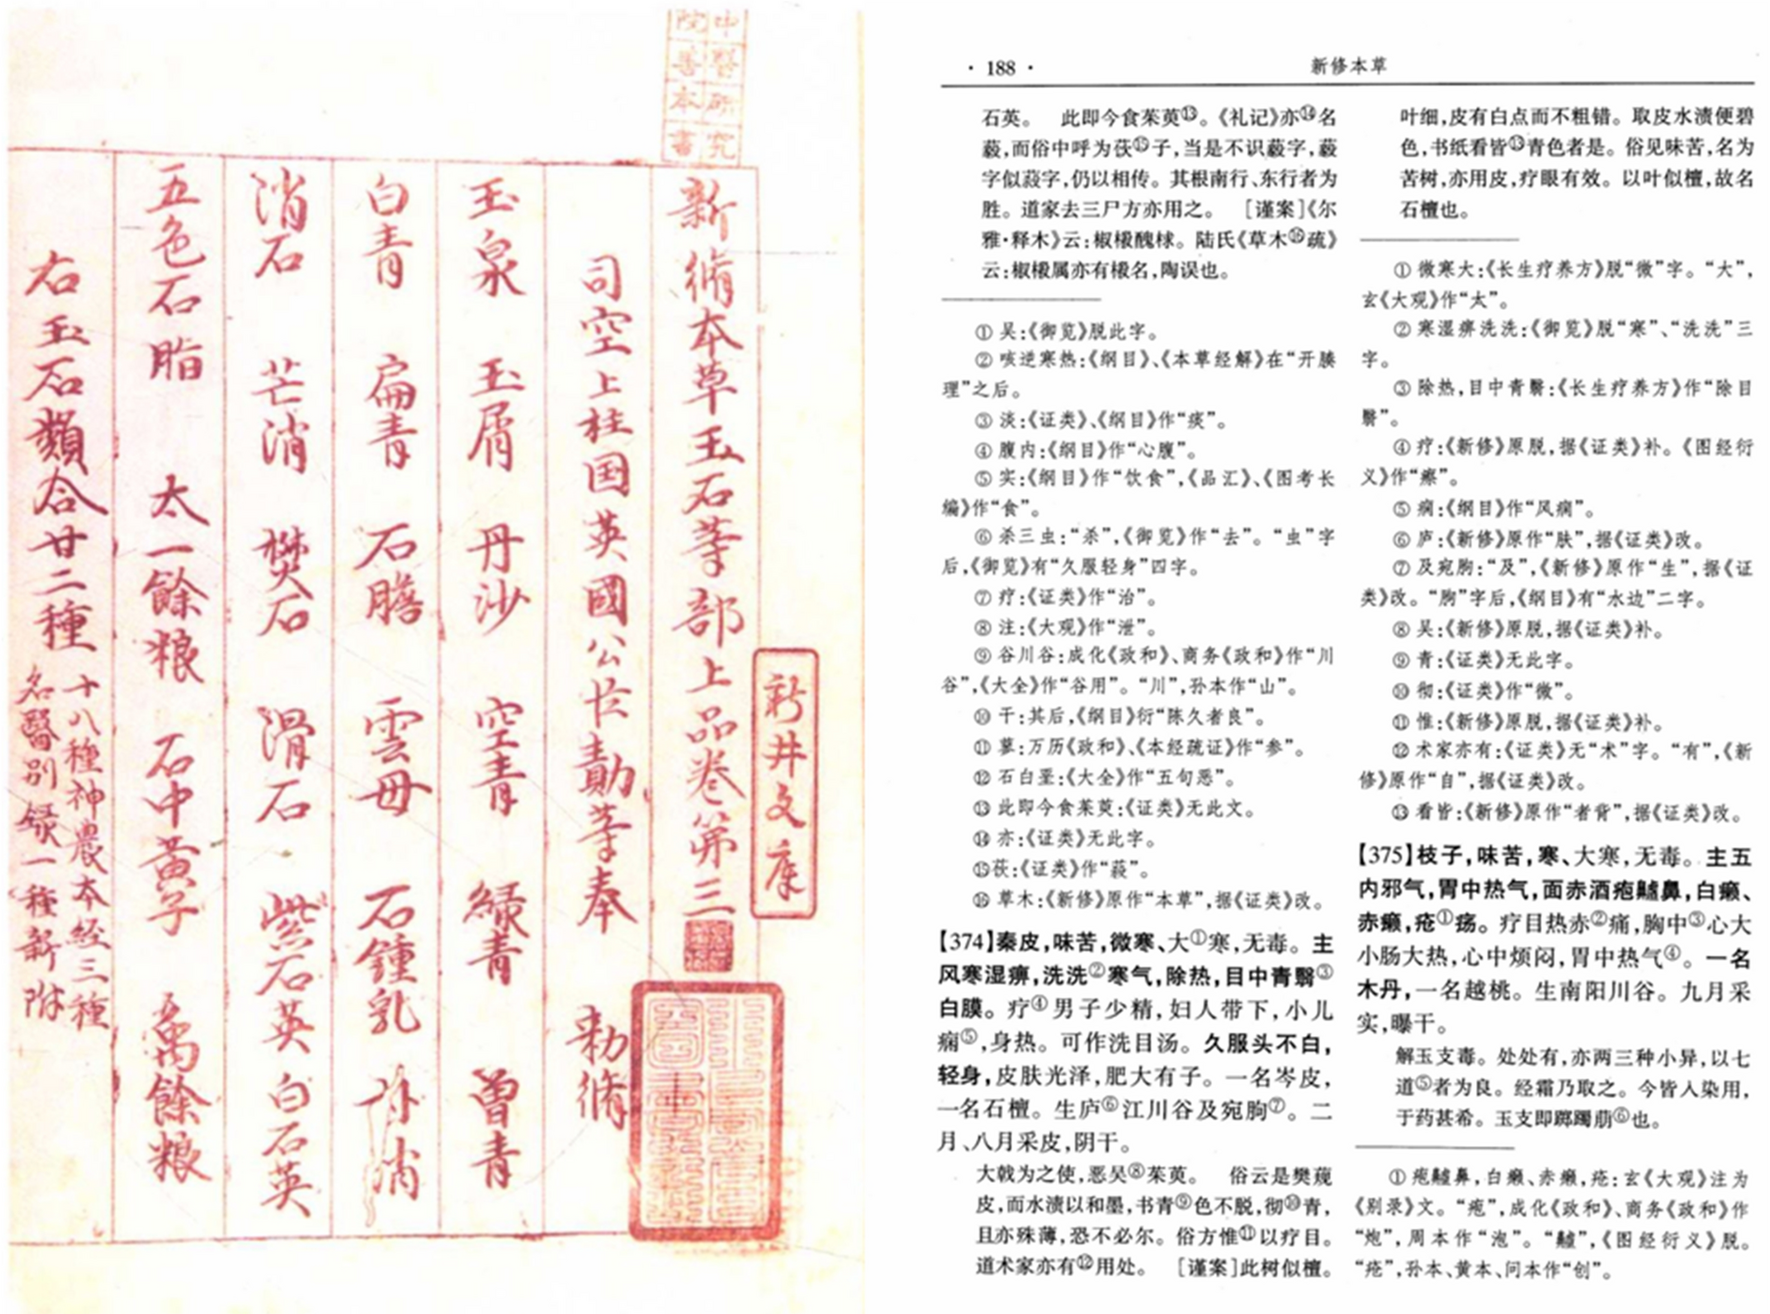 中醫研究
院善本書
新脩本草玉石等部上品卷第三
司空上柱国英國公臣勣等奉 勑脩
玉泉 玉屑 丹沙 空青 緑青 曽青
白青 扁青 石膽 雲母 石鍾乳 朴消
消石 芒消 樊石 滑石 紫石英 白石英
五色石脂 太一餘粮 石中黄子 禹餘粮
右玉石類合廿二種 十八種神農本経三種
名醫别録一種新附
新井文庫
· 188 ·
新修本草
石英。 此即今食茱萸⑬。《礼记》亦⑭名
藙,而俗中呼为茯⑮子,当是不识藙字,藙
字似蔱字,仍以相传。其根南行、东行者为
胜。道家去三尸方亦用之。 [谨案]《尔
雅·释木》云:椒樧醜梂。陆氏《草木⑯疏》
云:椒樧属亦有樧名,陶误也。
① 吴:《御览》脱此字。
② 咳逆寒热:《纲目》、《本草经解》在“开腠
理”之后。
③ 淡:《证类》、《纲目》作“痰”。
④ 腹内:《纲目》作“心腹”。
⑤ 实:《纲目》作“饮食”,《品汇》、《图考长
编》作“食”。
⑥ 杀三虫:“杀”,《御览》作“去”。“虫”字
后,《御览》有“久服轻身”四字。
⑦ 疗:《证类》作“治”。
⑧ 注:《大观》作“泄”。
⑨ 谷川谷:成化《政和》、商务《政和》作“川
谷”,《大全》作“谷用”。“川”,孙本作“山”。
⑩ 干:其后,《纲目》衍“陈久者良”。
⑪ 蓼:万历《政和》、《本经疏证》作“参”。
⑫ 石白垩:《大全》作“五句恶”。
⑬ 此即今食茱萸:《证类》无此文。
⑭ 亦:《证类》无此字。
⑮茯:《证类》作“蔱”。
⑯ 草木:《新修》原作“本草”,据《证类》改。
【374】秦皮,味苦,微寒、大①寒,无毒。主
风寒湿痹,洗洗②寒气,除热,目中青翳③
白膜。疗④男子少精,妇人带下,小儿
痫⑤,身热。可作洗目汤。久服头不白,
轻身,皮肤光泽,肥大有子。一名岑皮,
一名石檀。生庐⑥江川谷及宛朐⑦。二
月、八月采皮,阴干。
大戟为之使,恶吴⑧茱萸。 俗云是樊槻
皮,而水渍以和墨,书青⑨色不脱,彻⑩青,
且亦殊薄,恐不必尔。俗方惟⑪以疗目。
道术家亦有⑫用处。 [谨案]此树似檀。
叶细,皮有白点而不粗错。取皮水渍便碧
色,书纸看皆⑬青色者是。俗见味苦,名为
苦树,亦用皮,疗眼有效。以叶似檀,故名
石檀也。
① 微寒大:《长生疗养方》脱“微”字。“大”,
玄《大观》作“太”。
② 寒湿痹洗洗:《御览》脱“寒”、“洗洗”三
字。
③ 除热,目中青翳:《长生疗养方》作“除目
翳”。
④ 疗:《新修》原脱,据《证类》补。《图经衍
义》作“瘵”。
⑤ 痫:《纲目》作“风痫”。
⑥ 庐:《新修》原作“肤”,据《证类》改。
⑦ 及宛朐:“及”,《新修》原作“生”,据《证
类》改。“朐”字后,《纲目》有“水边”二字。
⑧ 吴:《新修》原脱,据《证类》补。
⑨ 青:《证类》无此字。
⑩ 彻:《证类》作“微”。
⑪ 惟:《新修》原脱,据《证类》补。
⑫ 术家亦有:《证类》无“术”字。“有”,《新
修》原作“自”,据《证类》改。
⑬ 看皆:《新修》原作“者背”,据《证类》改。
【375】枝子,味苦,寒、大寒,无毒。主五
内邪气,胃中热气,面赤酒疱皶鼻,白癞、
赤癞,疮①疡。疗目热赤②痛,胸中③心大
小肠大热,心中烦闷,胃中热气④。一名
木丹,一名越桃。生南阳川谷。九月采
实,曝干。
解玉支毒。处处有,亦两三种小异,以七
道⑤者为良。经霜乃取之。今皆人染用,
于药甚希。玉支即踯躅萠⑥也。
① 疱皶鼻,白癞、赤癞,疮:玄《大观》注为
《别录》文。“疱”,成化《政和》、商务《政和》作
“炮”,周本作“泡”。“皶”,《图经衍义》脱。
“疮”,孙本、黄本、问本作“创”。